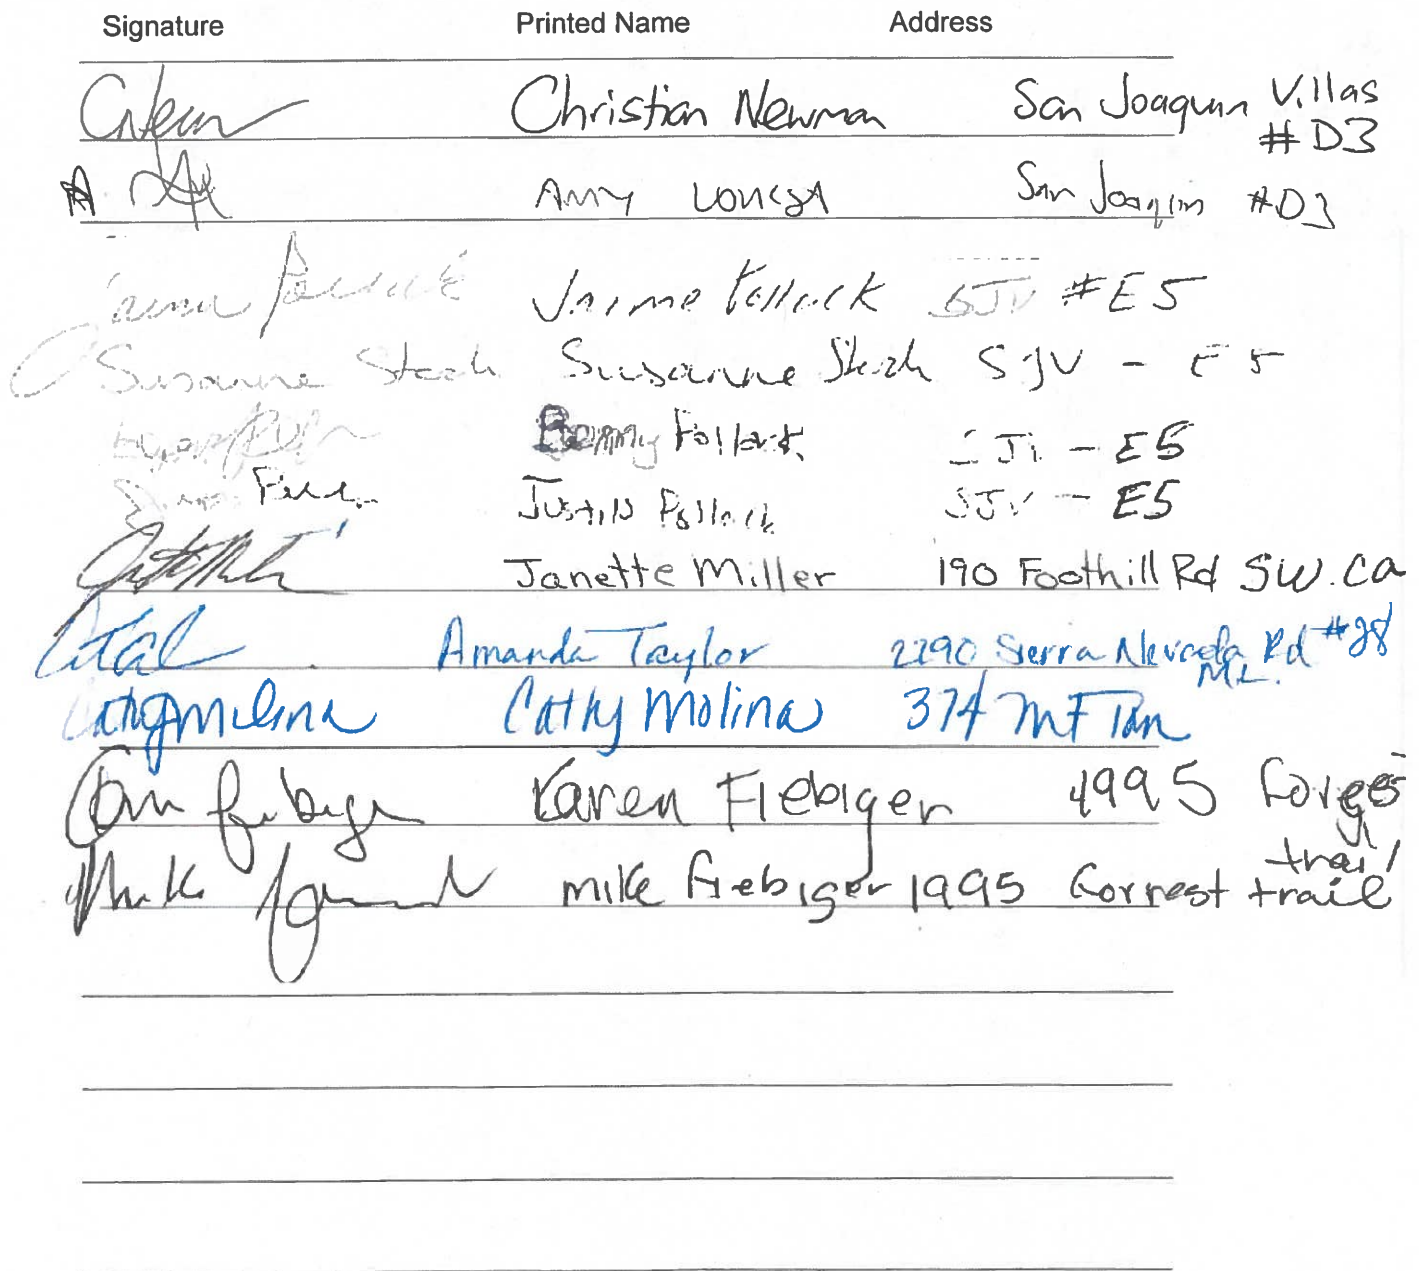 Signature Printed Name Address
Christian Newman San Joaquin Villas
#D3
A Amy San Joaquin #D3
Jaime Pollack SJV #E5
Susanne Stech Susanne Stech SJV - E5
Benny Pollack SJV - E5
Justin Pollack SJV - E5
Janette Miller 190 Foothill Rd SW. Ca
Amanda Taylor 2290 Sierra Nevada Rd #28
ML.
Cathy Molina Cathy Molina 374 MF Tom
Karen Fiebiger 1995 Forest
trail
Mike mike Fiebiger 1995 Forrest trail